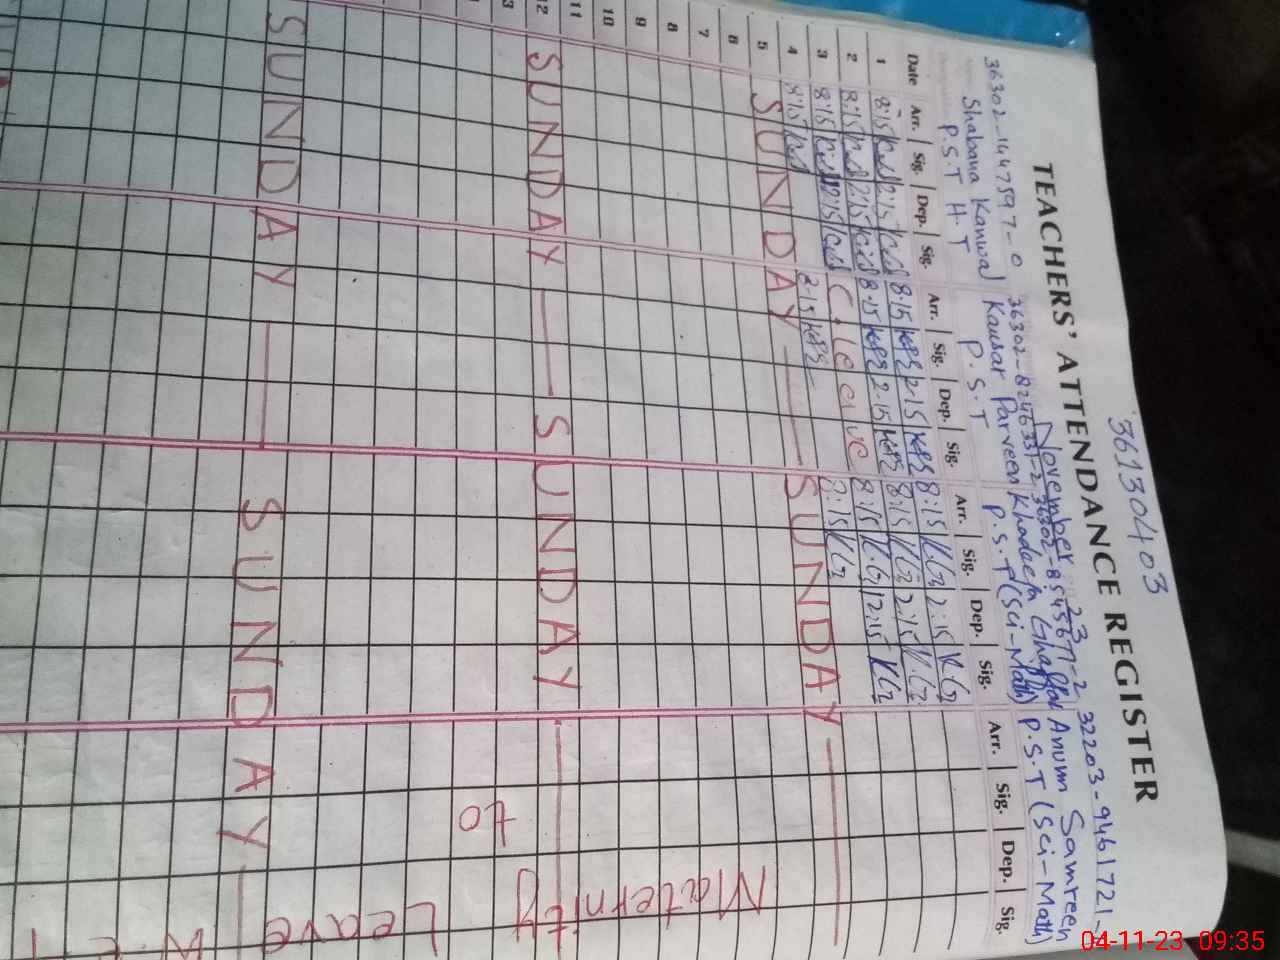 36130403
TEACHERS' ATTENDANCE REGISTER
November 23
36302-1647597-0
Shabana Kanwal
P.S.T H.T
36302-8246331-2
Kausar Parveen
P.S.T
36302-8545671-2
Khadeeja Ghaffar
P.S.T (Sci-Math)
32203-9461721-
Anum Samreen
P.S.T (Sci-Math)
Date Arr. Sig. Dep. Sig. Arr. Sig. Dep. Sig. Arr. Sig. Dep. Sig. Arr. Sig. Dep. Sig.
1 8:15 2:15 8:15 2:15 8:15 KG 2:15 KG
2 8:15 2:15 8:15 2:15 8:15 KG 2:15 KG
3 8:15 2:15 C. leave 8:15 K.G 12:15 KG
4 8:15 2:15 8:15 KG
5 SUNDAY SUNDAY
6
7
8
9
10
11
12 SUNDAY SUNDAY
13
SUNDAY SUNDAY
Maternity
Leave
to
04-11-23 09:35